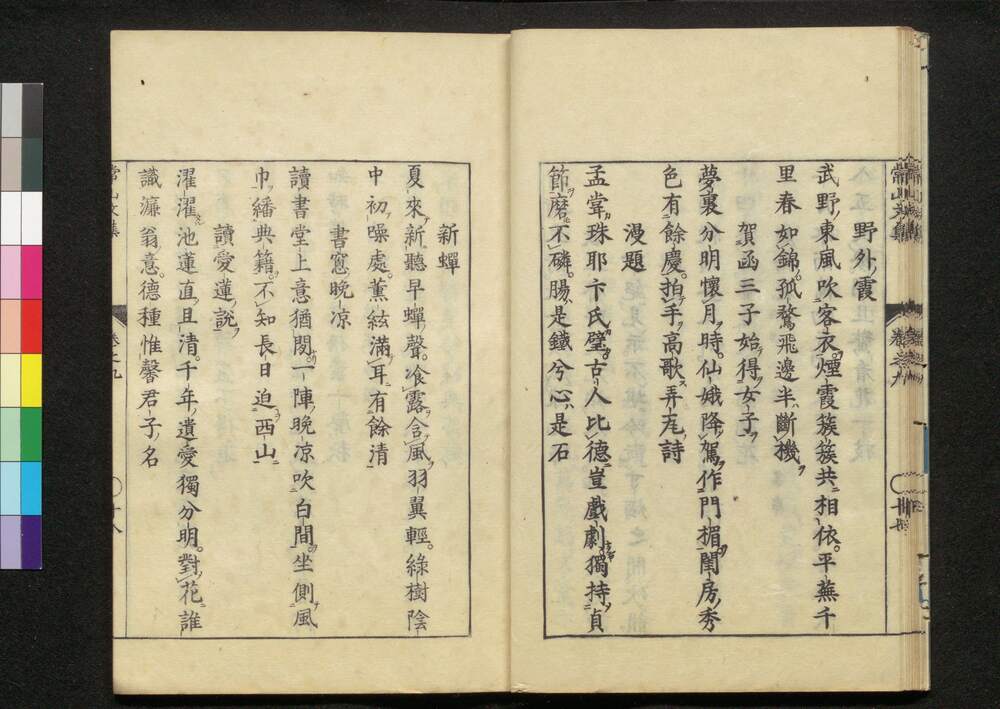 野外霞
武野東風吹客衣煙霞簇簇共相依平蕪千
里春如錦孤鶩飛邊半斷機
賀函三子始得女子
夢裏分明懷月時仙娥降駕作門楣閨房秀
色有餘慶拍手高歌弄瓦詩
漫題
孟甞珠耶卞氏璧古人比德豈戲劇獨持貞
節磨不磷腸是鐵兮心是石
新蟬
夏來新聽早蟬聲飡露含風羽翼輕綠樹陰
中初噪處薰絃滿耳有餘清
書窓晚凉
讀書堂上意猶閑一陣晚凉吹白間坐側風
巾繙典籍不知長日迫西山
讀愛蓮說
濯濯池蓮直且清千年遺愛獨分明對花誰
識濂翁意德種惟馨君子名
常山文集
卷之九
十八